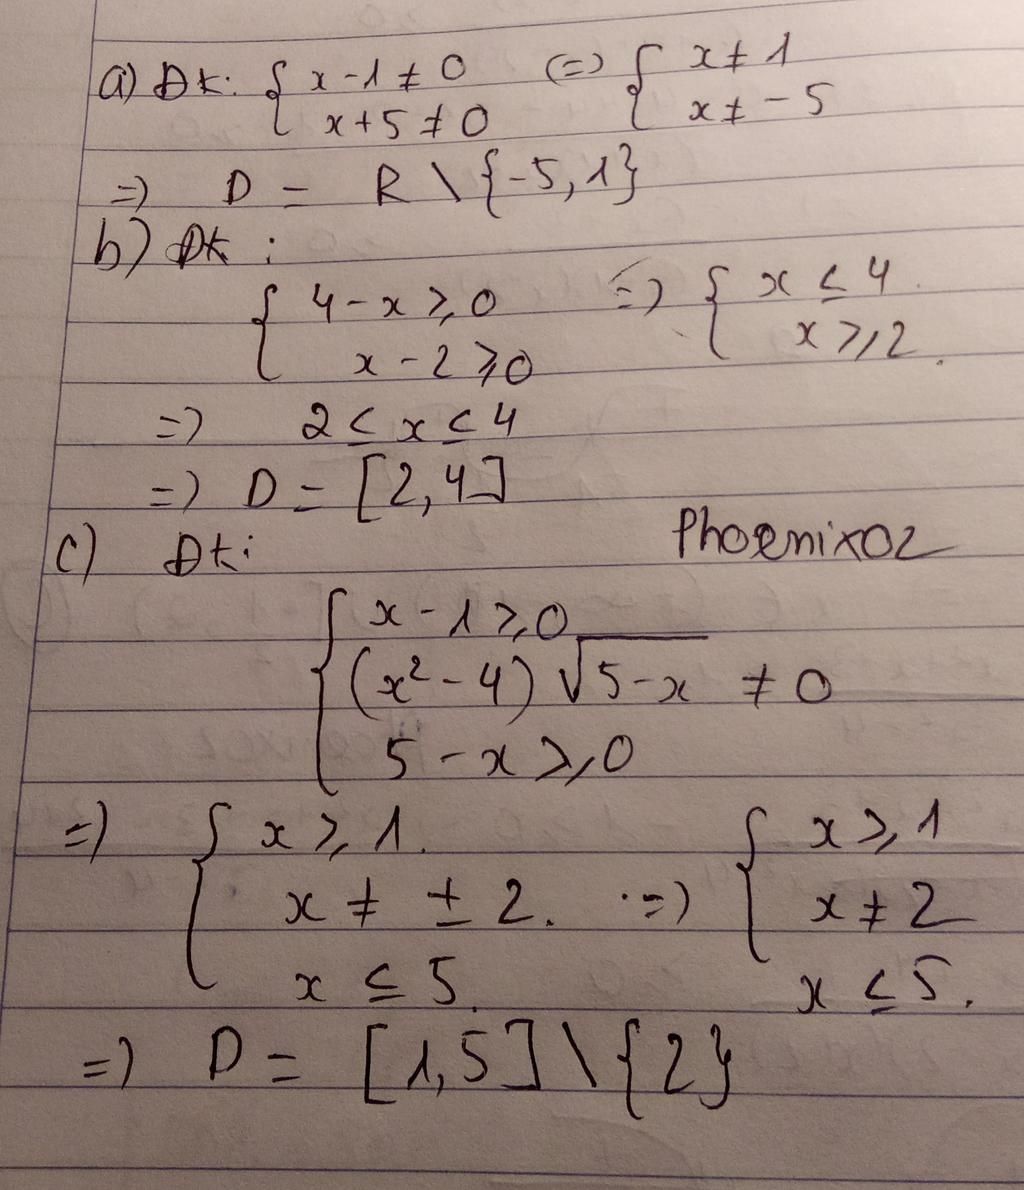 a) Đk: { x - 1 ≠ 0 (=) { x ≠ 1
x + 5 ≠ 0 x ≠ - 5
=) D = R \ {-5, 1}
b) Đk :
{ 4 - x ≥ 0 (=) { x ≤ 4
x - 2 ≥ 0 x ≥ 2.
=) 2 ≤ x ≤ 4
=) D = [2, 4]
c) Đk: Phoenix02
{ x - 1 ≥ 0
(x² - 4) √5-x ≠ 0
5 - x ≥ 0
=) { x ≥ 1. { x ≥ 1
x ≠ ± 2. =) x ≠ 2
x ≤ 5. x ≤ 5.
=) D = [1, 5] \ {2}